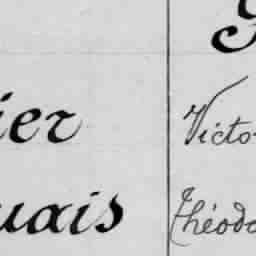 ier Victo
uais Théodo